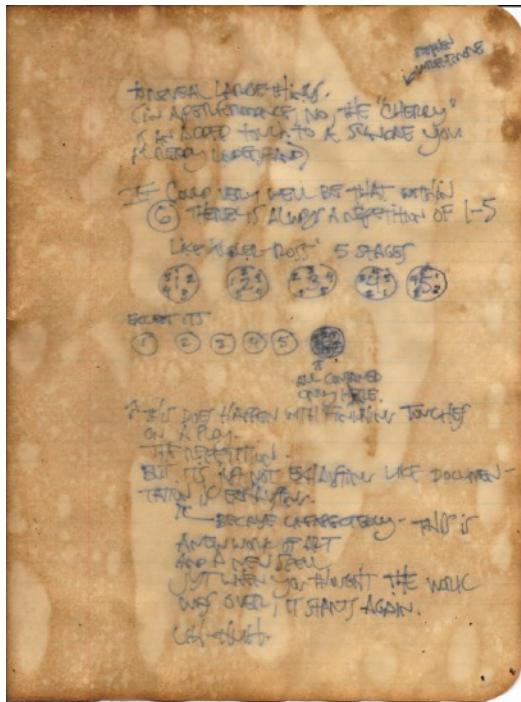 TO REVEAL LARGE THINGS.
(IN A PERFORMANCE, NO, THE "CHERRY"
IS AN ADDED TOUCH TO A SUNDAE YOU
ALREADY UNDERSTAND)
IT COULD VERY WELL BE THAT WITHIN
6 THERE IS ALWAYS A REPETITION OF 1-5
LIKE KÜBLER-ROSS' 5 STAGES
1 2 3 4 5
EXCEPT IT'S
1 2 3 4 5
ALL CONTAINED
ONLY HERE.
THIS DOES HAPPEN WITH FINISHING TOUCHES
ON A PLAY.
THE REPETITION.
BUT IT'S NOT EXHAUSTING LIKE DOCUMEN-
TATION IS EXHAUSTING.
BECAUSE UNEXPECTEDLY - THIS IS
A NEW WORK OF ART
AND A NEW
JUST WHEN YOU THOUGHT THE WORK
WAS OVER, IT STARTS AGAIN.